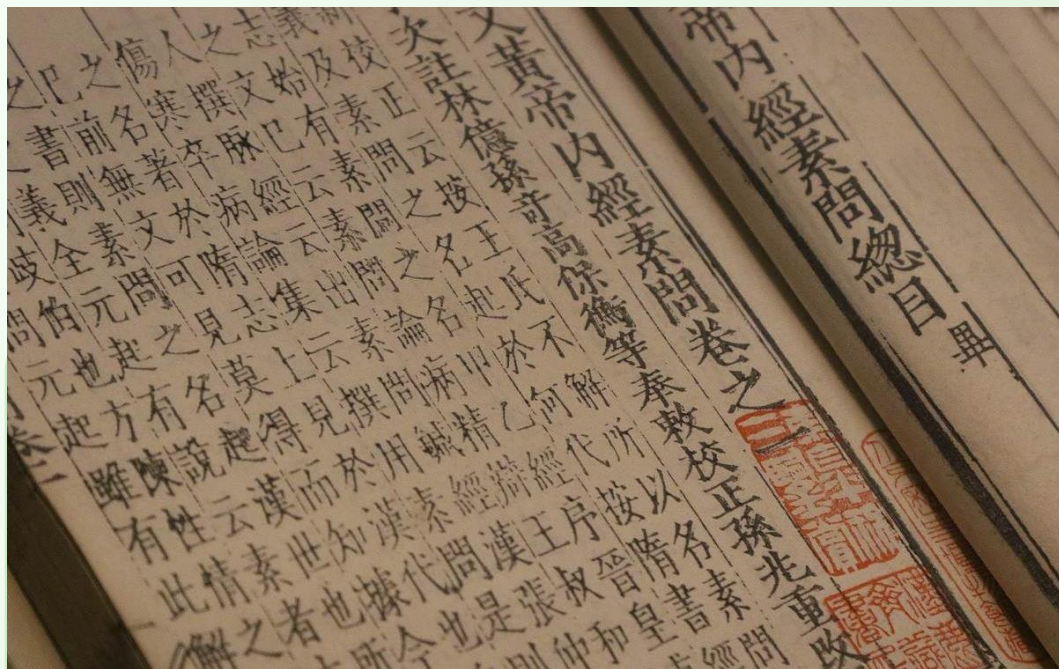 帝內經素問總目畢
文黃帝內經素問卷之一
次註林億孫奇高保衡等奉敕校正孫兆重改
新校正云按王氏不解所以名素問
義及素問之名起於何代按隋書經
志始有素問之名甲乙經序晉皇
之文已云素問論病精辯王叔和
人撰脉經云出素問鍼經漢張仲
傷寒卒病論集云撰用素問是則
之名著於隋志上見於漢代也
已前無文可見莫得而知據今
之書則素問之名起漢世也所
義全元起有說云素者
歧伯也方陳性情之
問元起雖有此解